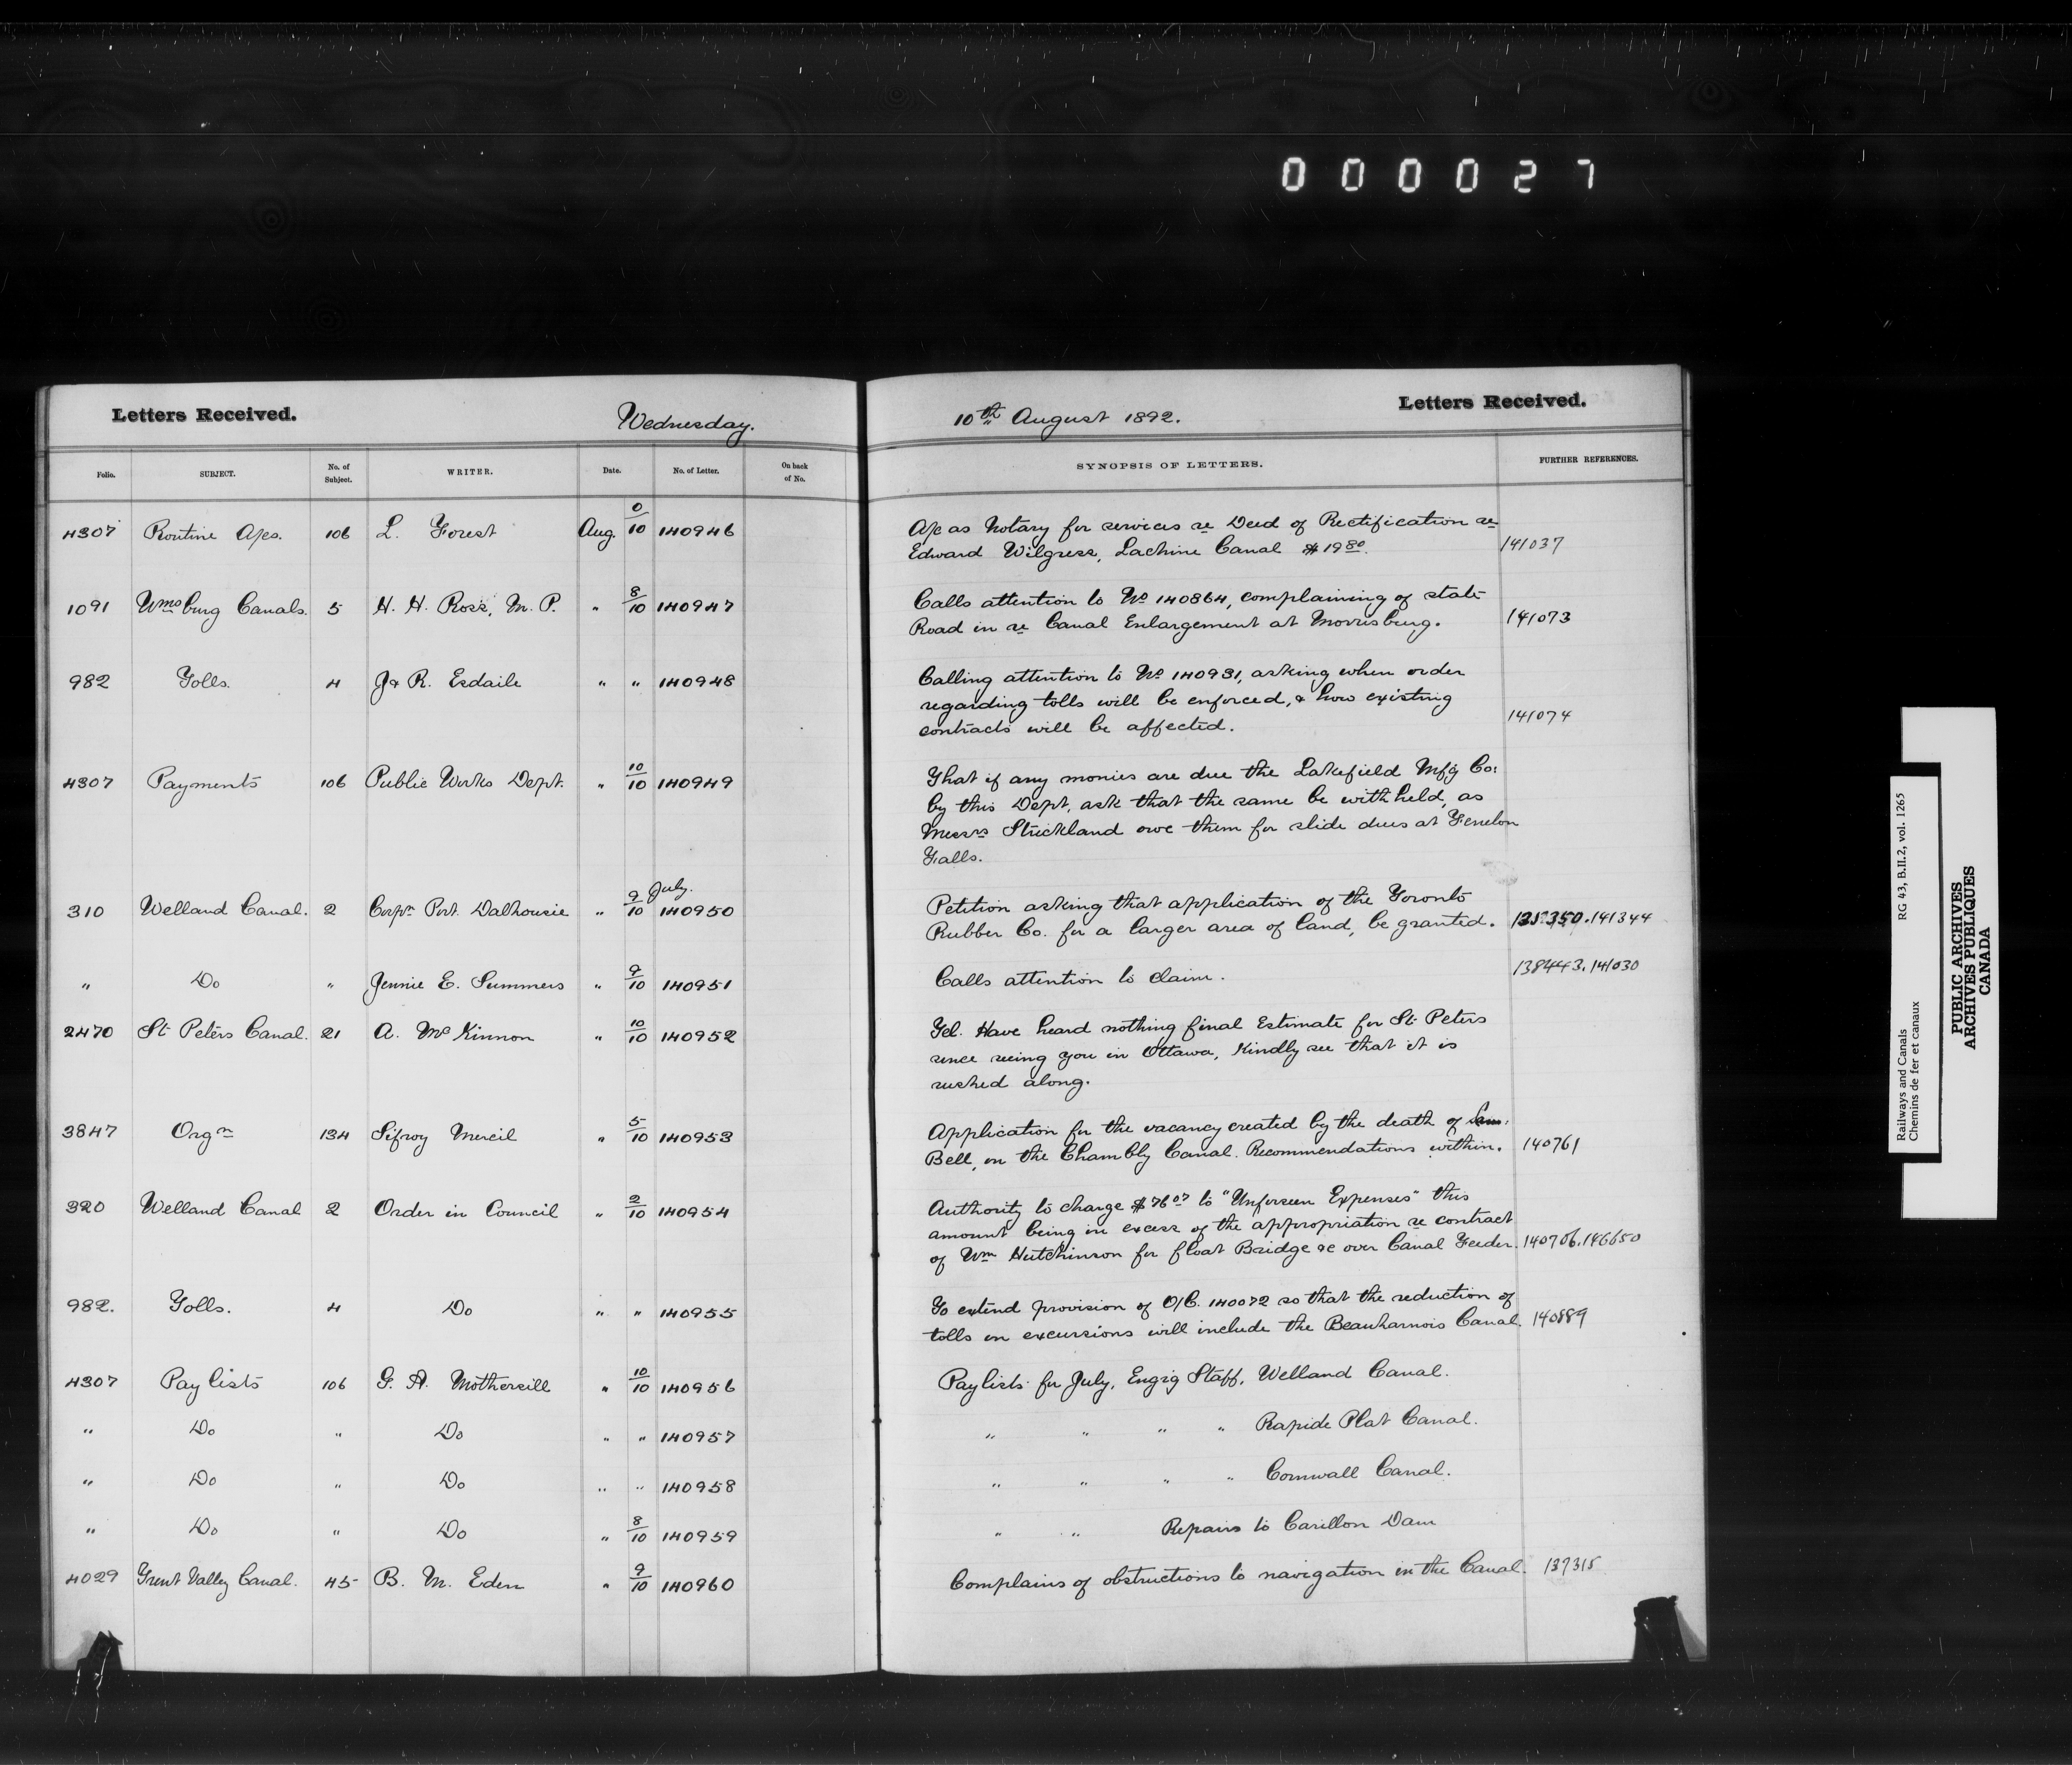 000027
Letters Received. Wednesday. 10th August 1892. Letters Received.
Folio. SUBJECT. No. of Subject. WRITER. Date. No. of Letter. On back of No. SYNOPSIS OF LETTERS. FURTHER REFERENCES.
4307 Routine A/cs. 106 L. Forest Aug. 0/10 140946 A/c as Notary for services re Deed of Rectification re
Edward Wilgress, Lachine Canal $19 80. 141037
1091 Wmsburg Canals. 5 H. H. Ross, M. P. " 8/10 140947 Calls attention to No 140864, complaining of state
Road in re Canal Enlargement at Morrisburg. 141073
982 Tolls. 4 J & R. Esdaile " " 140948 Calling attention to No 140931, asking when order
regarding tolls will be enforced, & how existing
contracts will be affected. 141074
4307 Payments 106 Public Works Dept. " 10/10 140949 That if any monies are due the Lakefield Mfg Co:
by this Dept, ask that the same be withheld, as
Messrs Strickland owe them for slide dues at Fenelon
Falls.
310 Welland Canal. 2 Corpn Port Dalhousie " 9/10 July. 140950 Petition asking that application of the Toronto
Rubber Co. for a larger area of land, be granted. 141344
" Do " Jennie E. Summers " 9/10 140951 Calls attention to claim. 138443. 141030
2470 St Peters Canal. 21 A. McKinnon " 10/10 140952 Tel. Have heard nothing final Estimate for St Peters
since seeing you in Ottawa, Kindly see that it is
rushed along.
3847 Orgn 134 Sifroy Mercil " 5/10 140953 Application for the vacancy created by the death of Sam:
Bell, on the Chambly Canal. Recommendations within. 140761
320 Welland Canal 2 Order in Council " 2/10 140954 Authority to charge $76 07 to "Unforseen Expenses" this
amount being in excess of the appropriation re contract
of Wm Hutchinson for float Bridge &c over Canal Feeder. 140706. 146650
982. Tolls. 4 Do " " 140955 To extend provision of O/C. 140072 so that the reduction of
tolls on excursions will include the Beauharnois Canal. 140889
4307 Pay lists 106 G. A. Mothersill " 10/10 140956 Pay lists for July, Engrg Staff, Welland Canal.
" Do " Do " " 140957 " " " " Rapide Plat Canal.
" Do " Do " " 140958 " " " " Cornwall Canal.
" Do " Do " 8/10 140959 " " Repairs to Carillon Dam
4029 Trent Valley Canal. 45 B. M. Eden " 9/10 140960 Complains of obstructions to navigation in the Canal. 137315
Railways and Canals RG 43, B.II.2, vol. 1265
Chemins de fer et canaux
PUBLIC ARCHIVES
ARCHIVES PUBLIQUES
CANADA